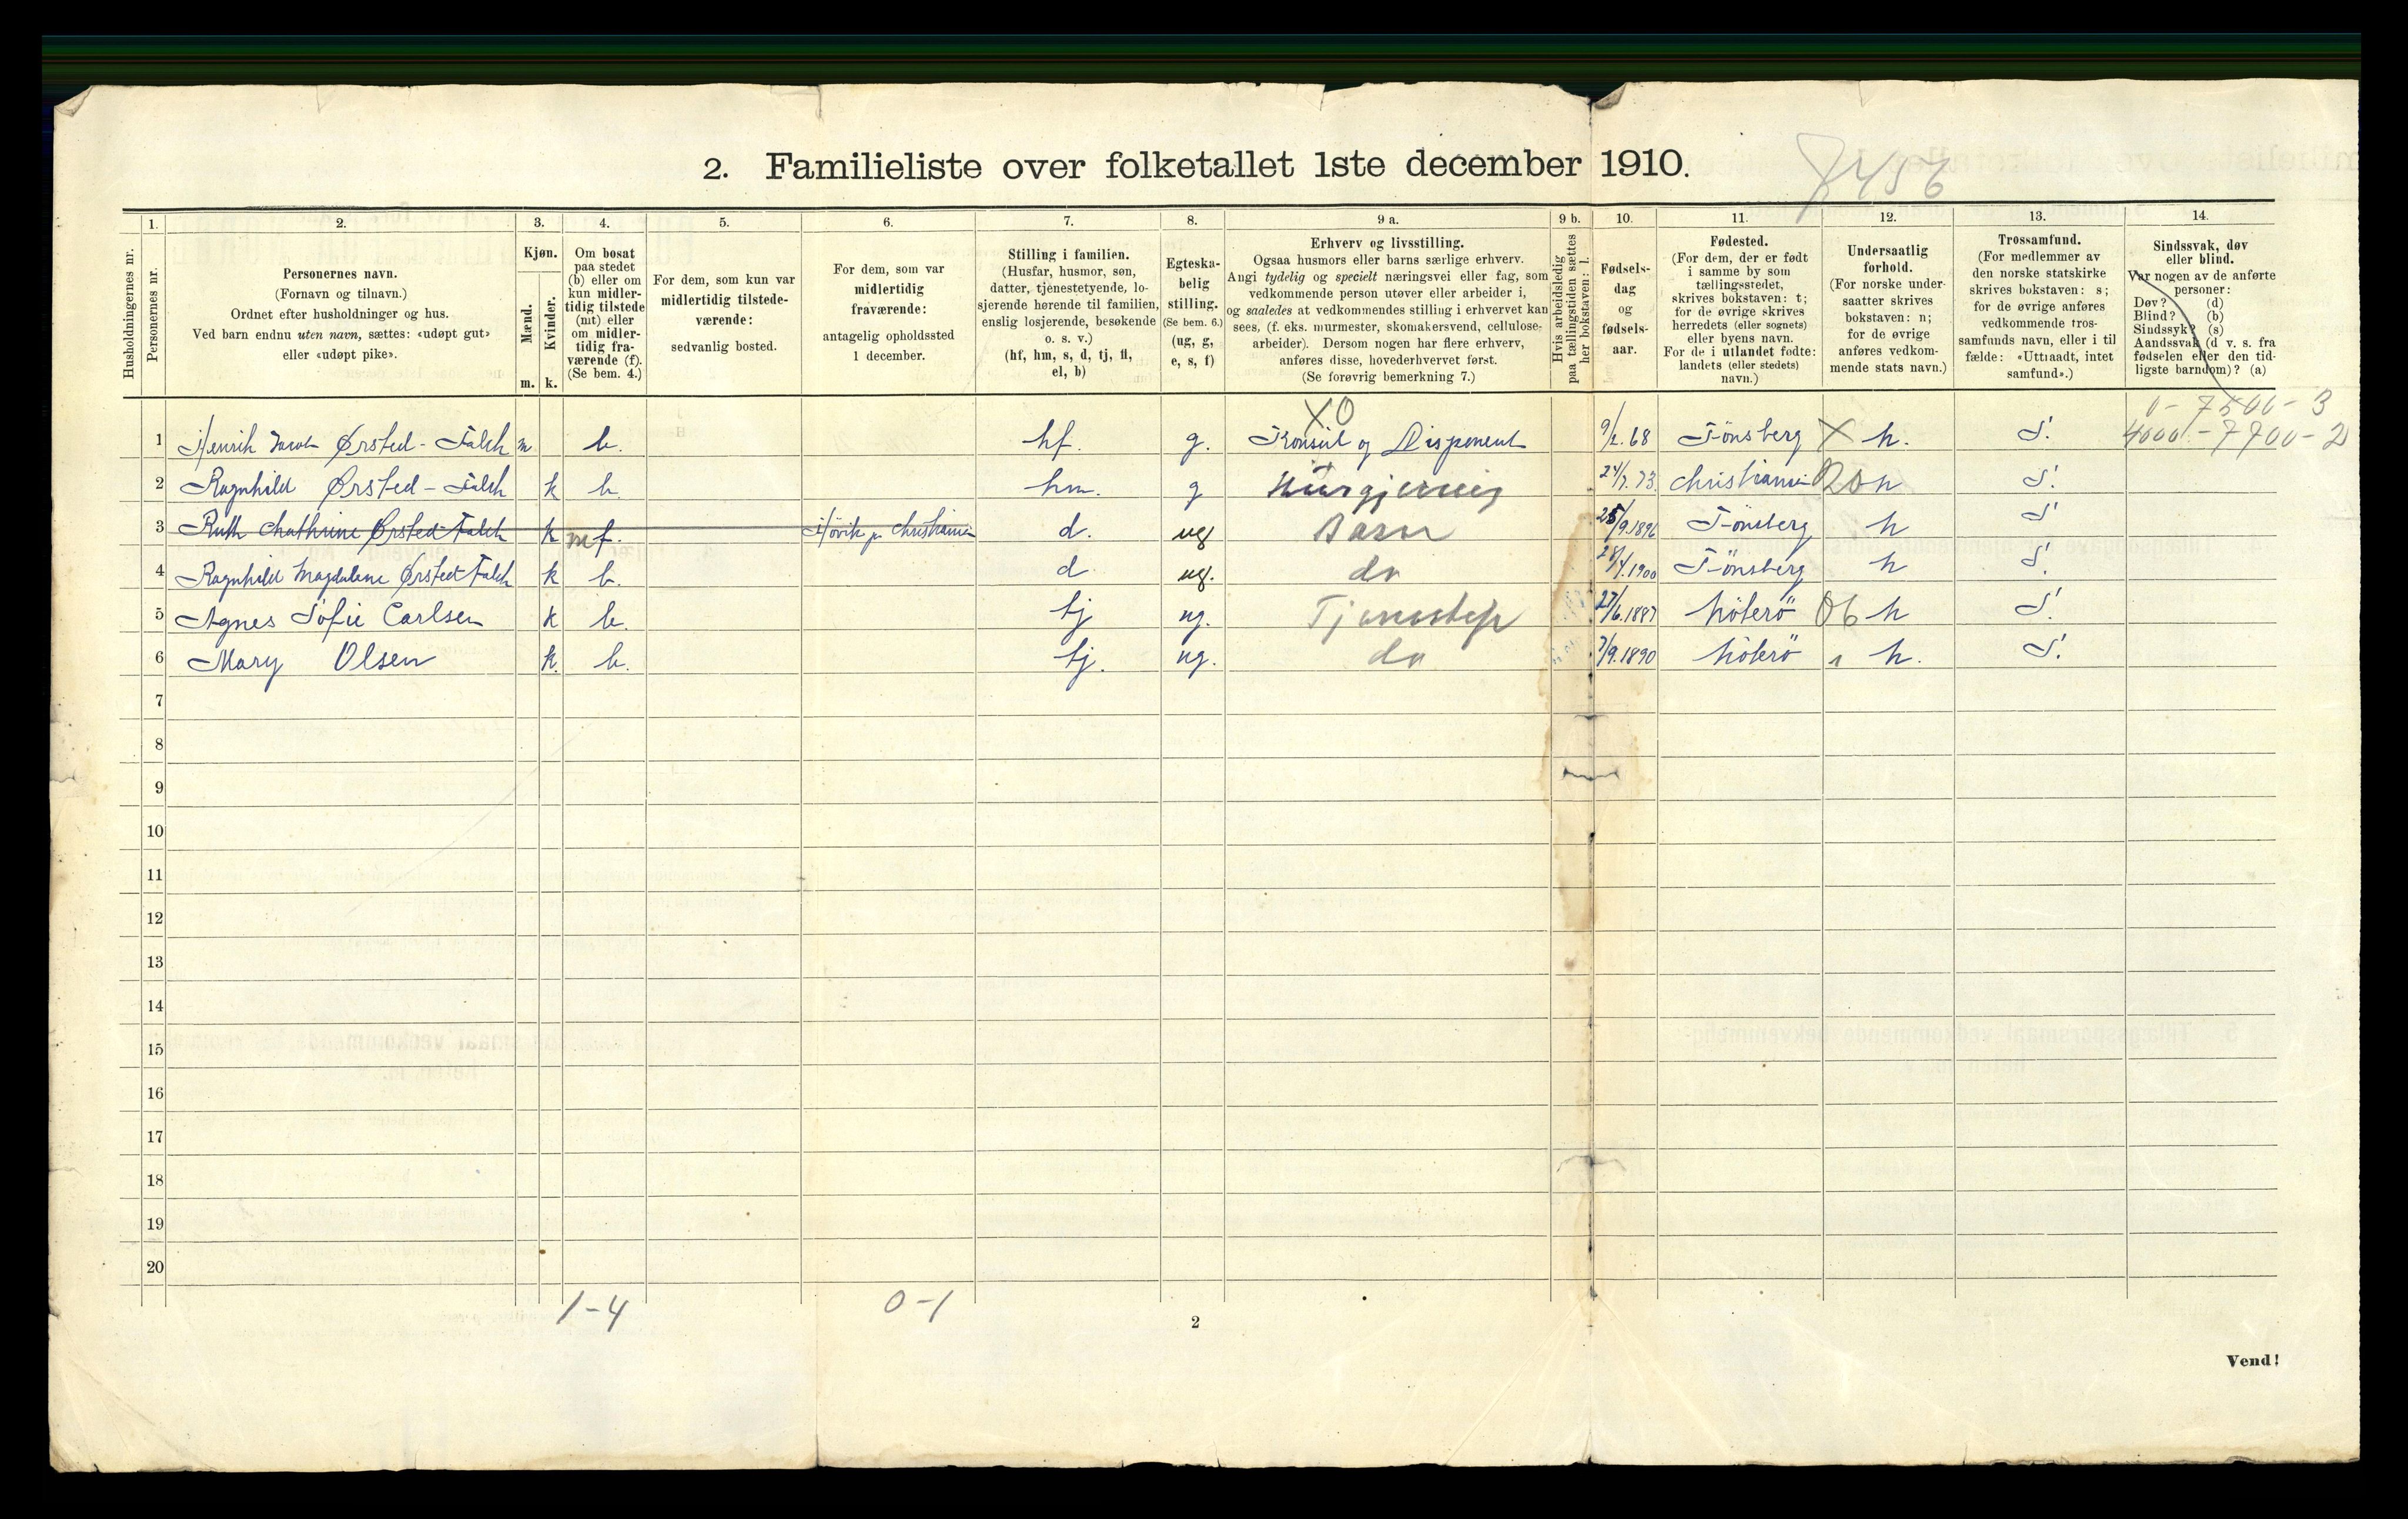 2. Familieliste over folketallet 1ste december 1910.
7456
Husholdningernes nr.
1.
Personernes nr.
2.
Personernes navn.
(Fornavn og tilnavn.)
Ordnet efter husholdninger og hus.
Ved barn endnu uten navn, sættes: «udøpt gut»
eller «udøpt pike».
3.
Kjøn.
Mænd.
Kvinder.
m. k.
4.
Om bosat
paa stedet
(b) eller om
kun midler-
tidig tilstede
(mt) eller
om midler-
tidig fra-
værende (f).
(Se bem. 4.)
5.
For dem, som kun var
midlertidig tilstede-
værende:
sedvanlig bosted.
6.
For dem, som var
midlertidig
fraværende:
antagelig opholdssted
1 december.
7.
Stilling i familien.
(Husfar, husmor, søn,
datter, tjenestetyende, lo-
sjerende hørende til familien,
enslig losjerende, besøkende
o. s. v.)
(hf, hm, s, d, tj, fl,
el, b)
8.
Egteska-
belig
stilling.
(Se bem. 6.)
(ug, g,
e, s, f)
9 a.
Erhverv og livsstilling.
Ogsaa husmors eller barns særlige erhverv.
Angi tydelig og specielt næringsvei eller fag, som
vedkommende person utøver eller arbeider i,
og saaledes at vedkommendes stilling i erhvervet kan
sees, (f. eks. murmester, skomakersvend, cellulose-
arbeider). Dersom nogen har flere erhverv,
anføres disse, hovederhvervet først.
(Se forøvrig bemerkning 7.)
9 b.
Hvis arbeidsledig
paa tællingstiden sættes
her bokstaven: l.
10.
Fødsels-
dag
og
fødsels-
aar.
11.
Fødested.
(For dem, der er født
i samme by som
tællingsstedet,
skrives bokstaven: t;
for de øvrige skrives
herredets (eller sognets)
eller byens navn.
For de i utlandet fødte:
landets (eller stedets)
navn.)
12.
Undersaatlig
forhold.
(For norske under-
saatter skrives
bokstaven: n;
for de øvrige
anføres vedkom-
mende stats navn.)
13.
Trossamfund.
(For medlemmer av
den norske statskirke
skrives bokstaven: s;
for de øvrige anføres
vedkommende tros-
samfunds navn, eller i til
fælde: «Uttraadt, intet
samfund».)
14.
Sindssvak, døv
eller blind.
Var nogen av de anførte
personer:
Døv? (d)
Blind? (b)
Sindssyk? (s)
Aandssvak (d v. s. fra
fødselen eller den tid-
ligste barndom)? (a)
XO
0 - 7500 - 3
1 Henrik Jacob Ørsted-Falck m b. hf. g. Konsul og Disponent 9/2.68 Tönsberg X n. S. 4000 - 7700 - 2
2 Ragnhild Ørsted-Falck k b. hm. g Husgjerning 24/7.73. Christiania 20 n S.
3 Ruth Chathrine Ørsted Falck k mf. Hövik pr Christiania d. ug Barn 25/9.1896 Tönsberg n S
4 Ragnhild Magdalene Ørsted Falck k b. d ug. do 28/4.1900 Tönsberg n S.
5 Agnes Sofie Carlsen k b. tj ug. Tjenestep 27/6.1887 Nöterö 06 n S.
6 Mary Olsen k. b. tj. ug. do 7/9.1890 Nöterö n. S.
7
8
9
10
11
12
13
14
15
16
17
18
19
20
1-4 0-1
2
Vend!